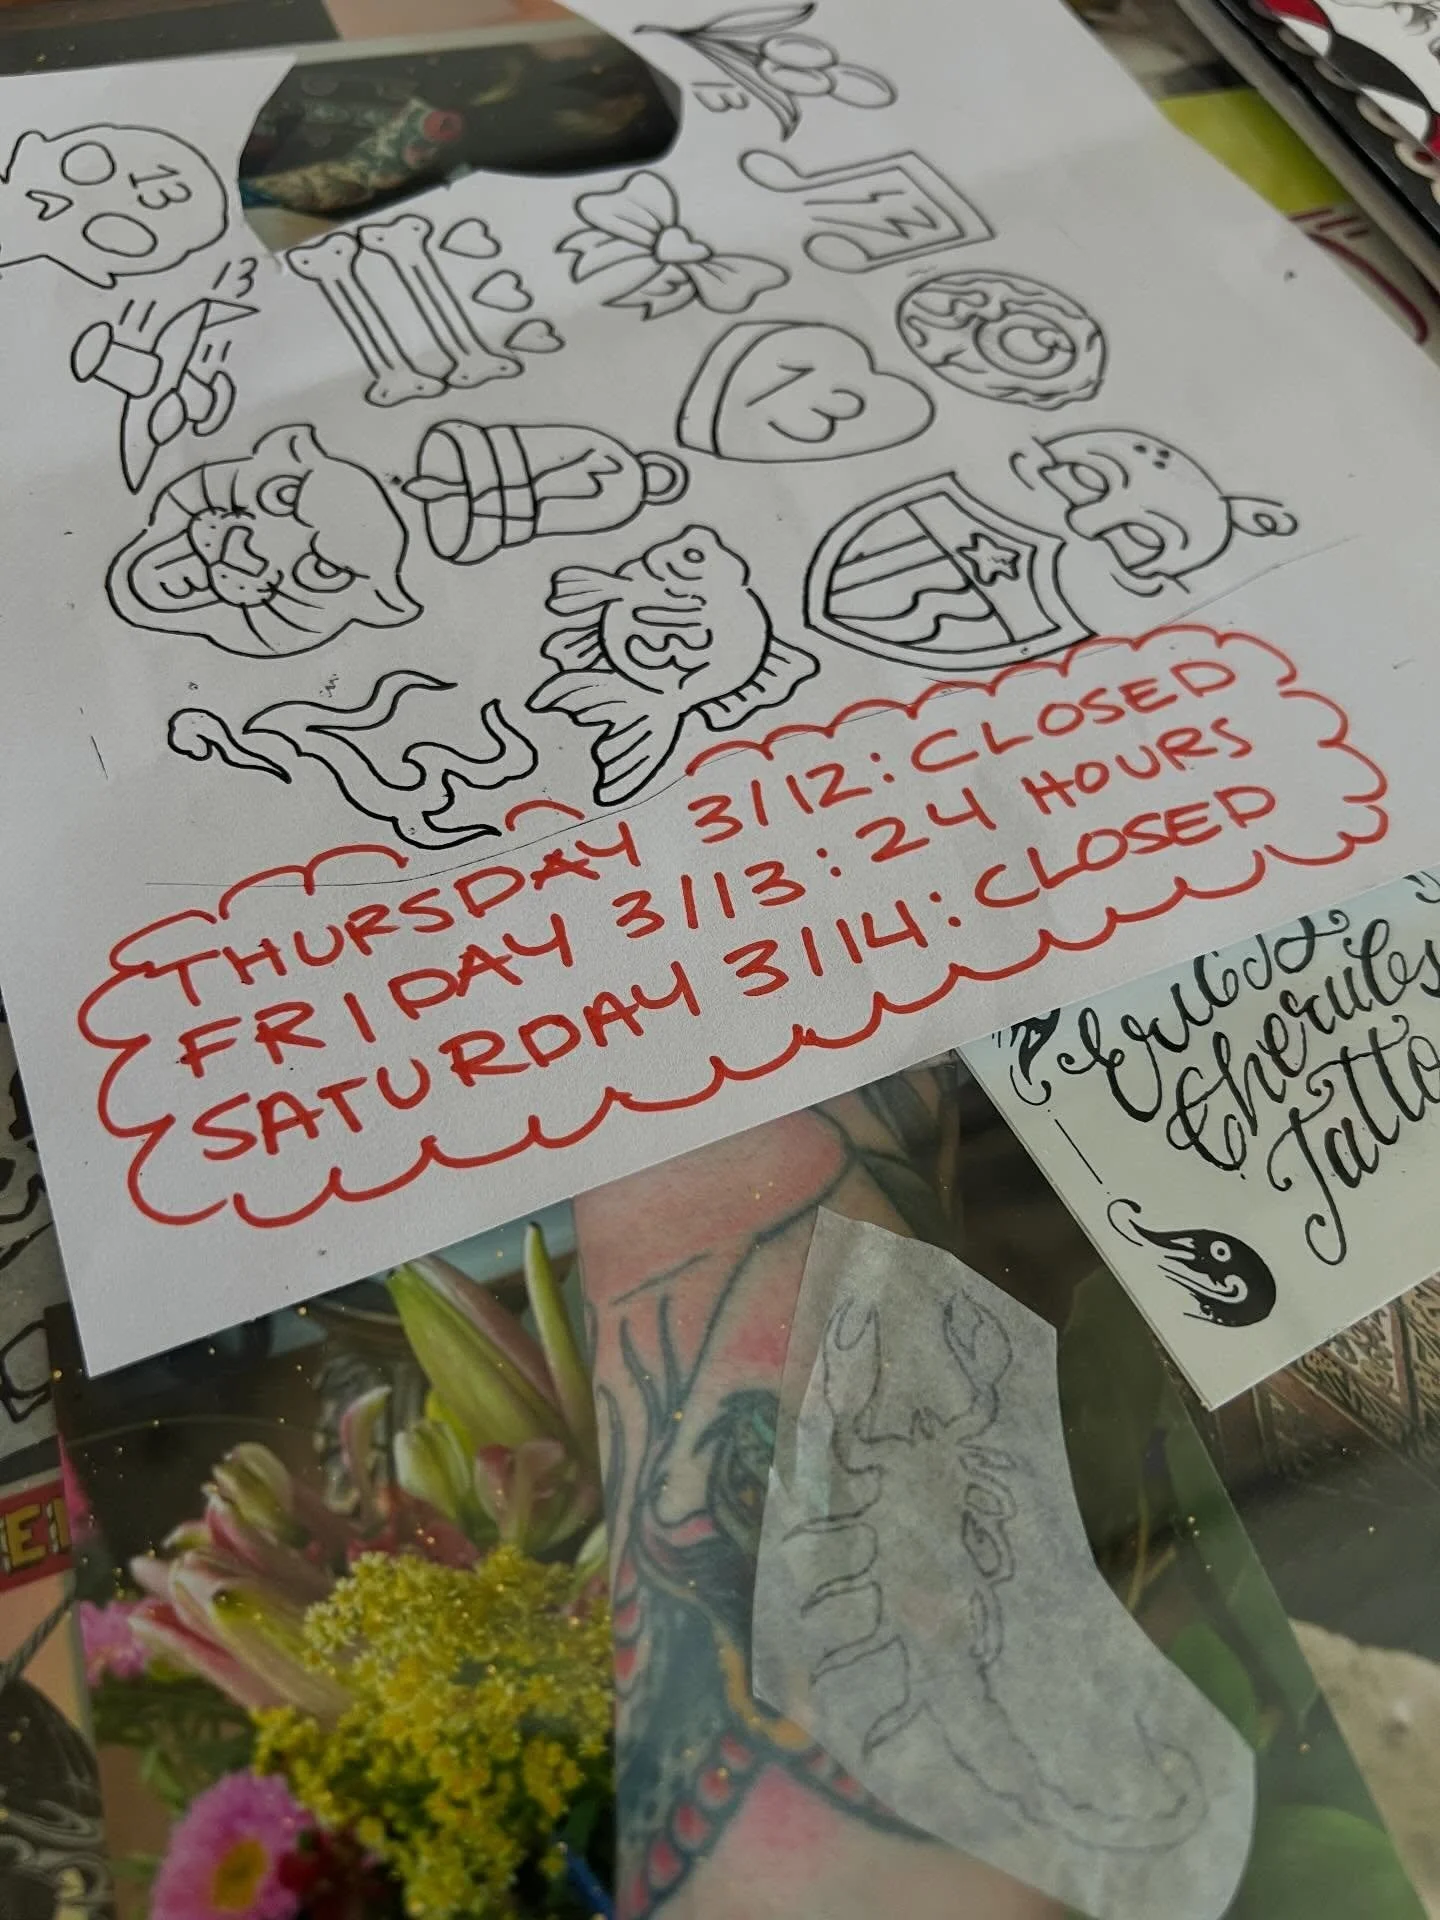 13
13
13
13
13
13
THURSDAY 3/12: CLOSED
FRIDAY 3/13: 24 HOURS
SATURDAY 3/14: CLOSED
Cherubs
Tattoo